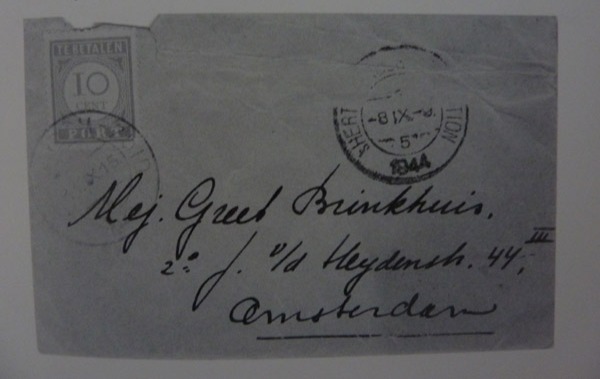 TE BETALEN
10
CENT
PORT
'SHERT
TION
-8 IX -
5
1944
Mej. Greet Brinkhuis.
2e J. v/d Heydenstr. 44, III
Amsterdam